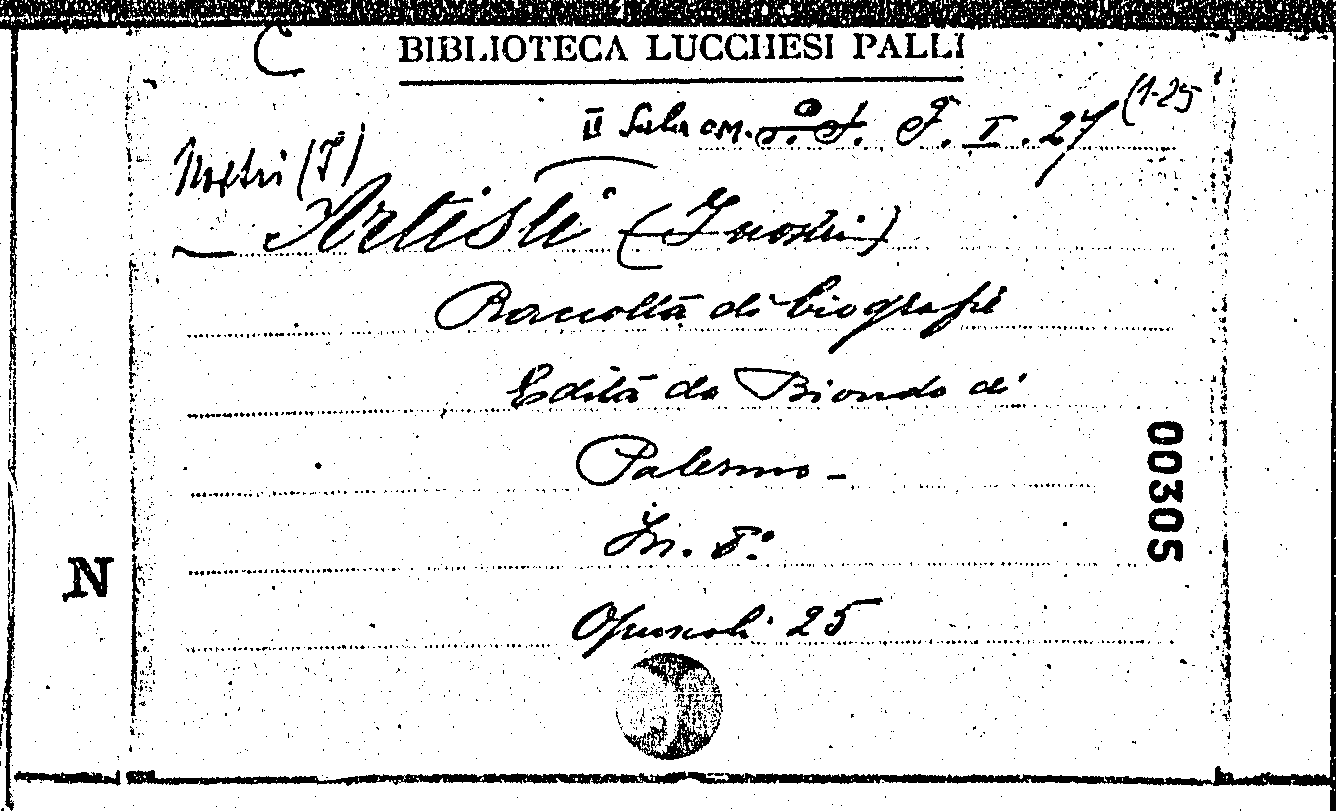 C
BIBLIOTECA LUCCHESI PALLI
II Sala F. I. 27 (1-25
Nostri (I)
— Artisti (I nostri)
Raccolta di biografie
Edita da Biondo di
Palermo -
In. 8°
Opuscoli 25
N
00305